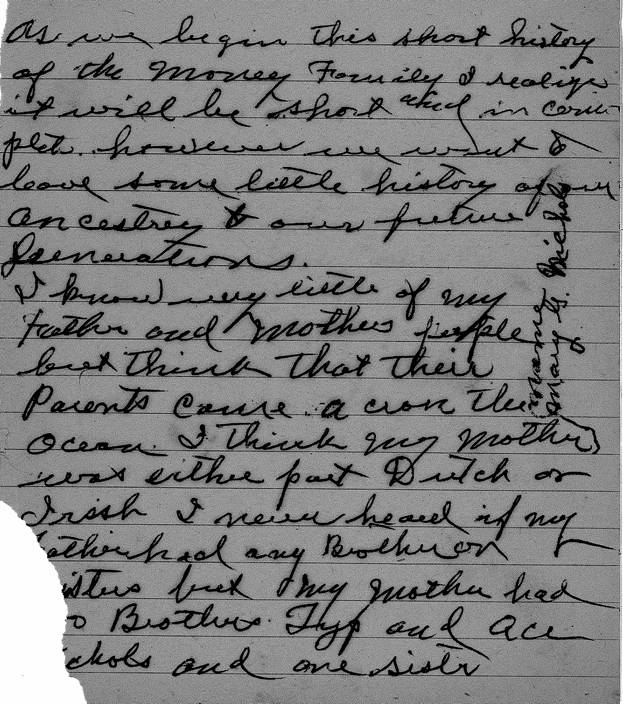 As we begin this short history
of the Money Family I realize
it will be short and in com
plet. however we want to
leave some little history of our
ancestrey to our future
Generations.
I know very little of my
Father and Mothers people
but think that their
Parents came a cross the
ocean. I think my mother
was either part Dutch or
Irish I never heard if my
father had any Brother or
isters but my mother had
o Brothers. Typ and Ace
ichols and one sistr
name
Mary G. Nichols